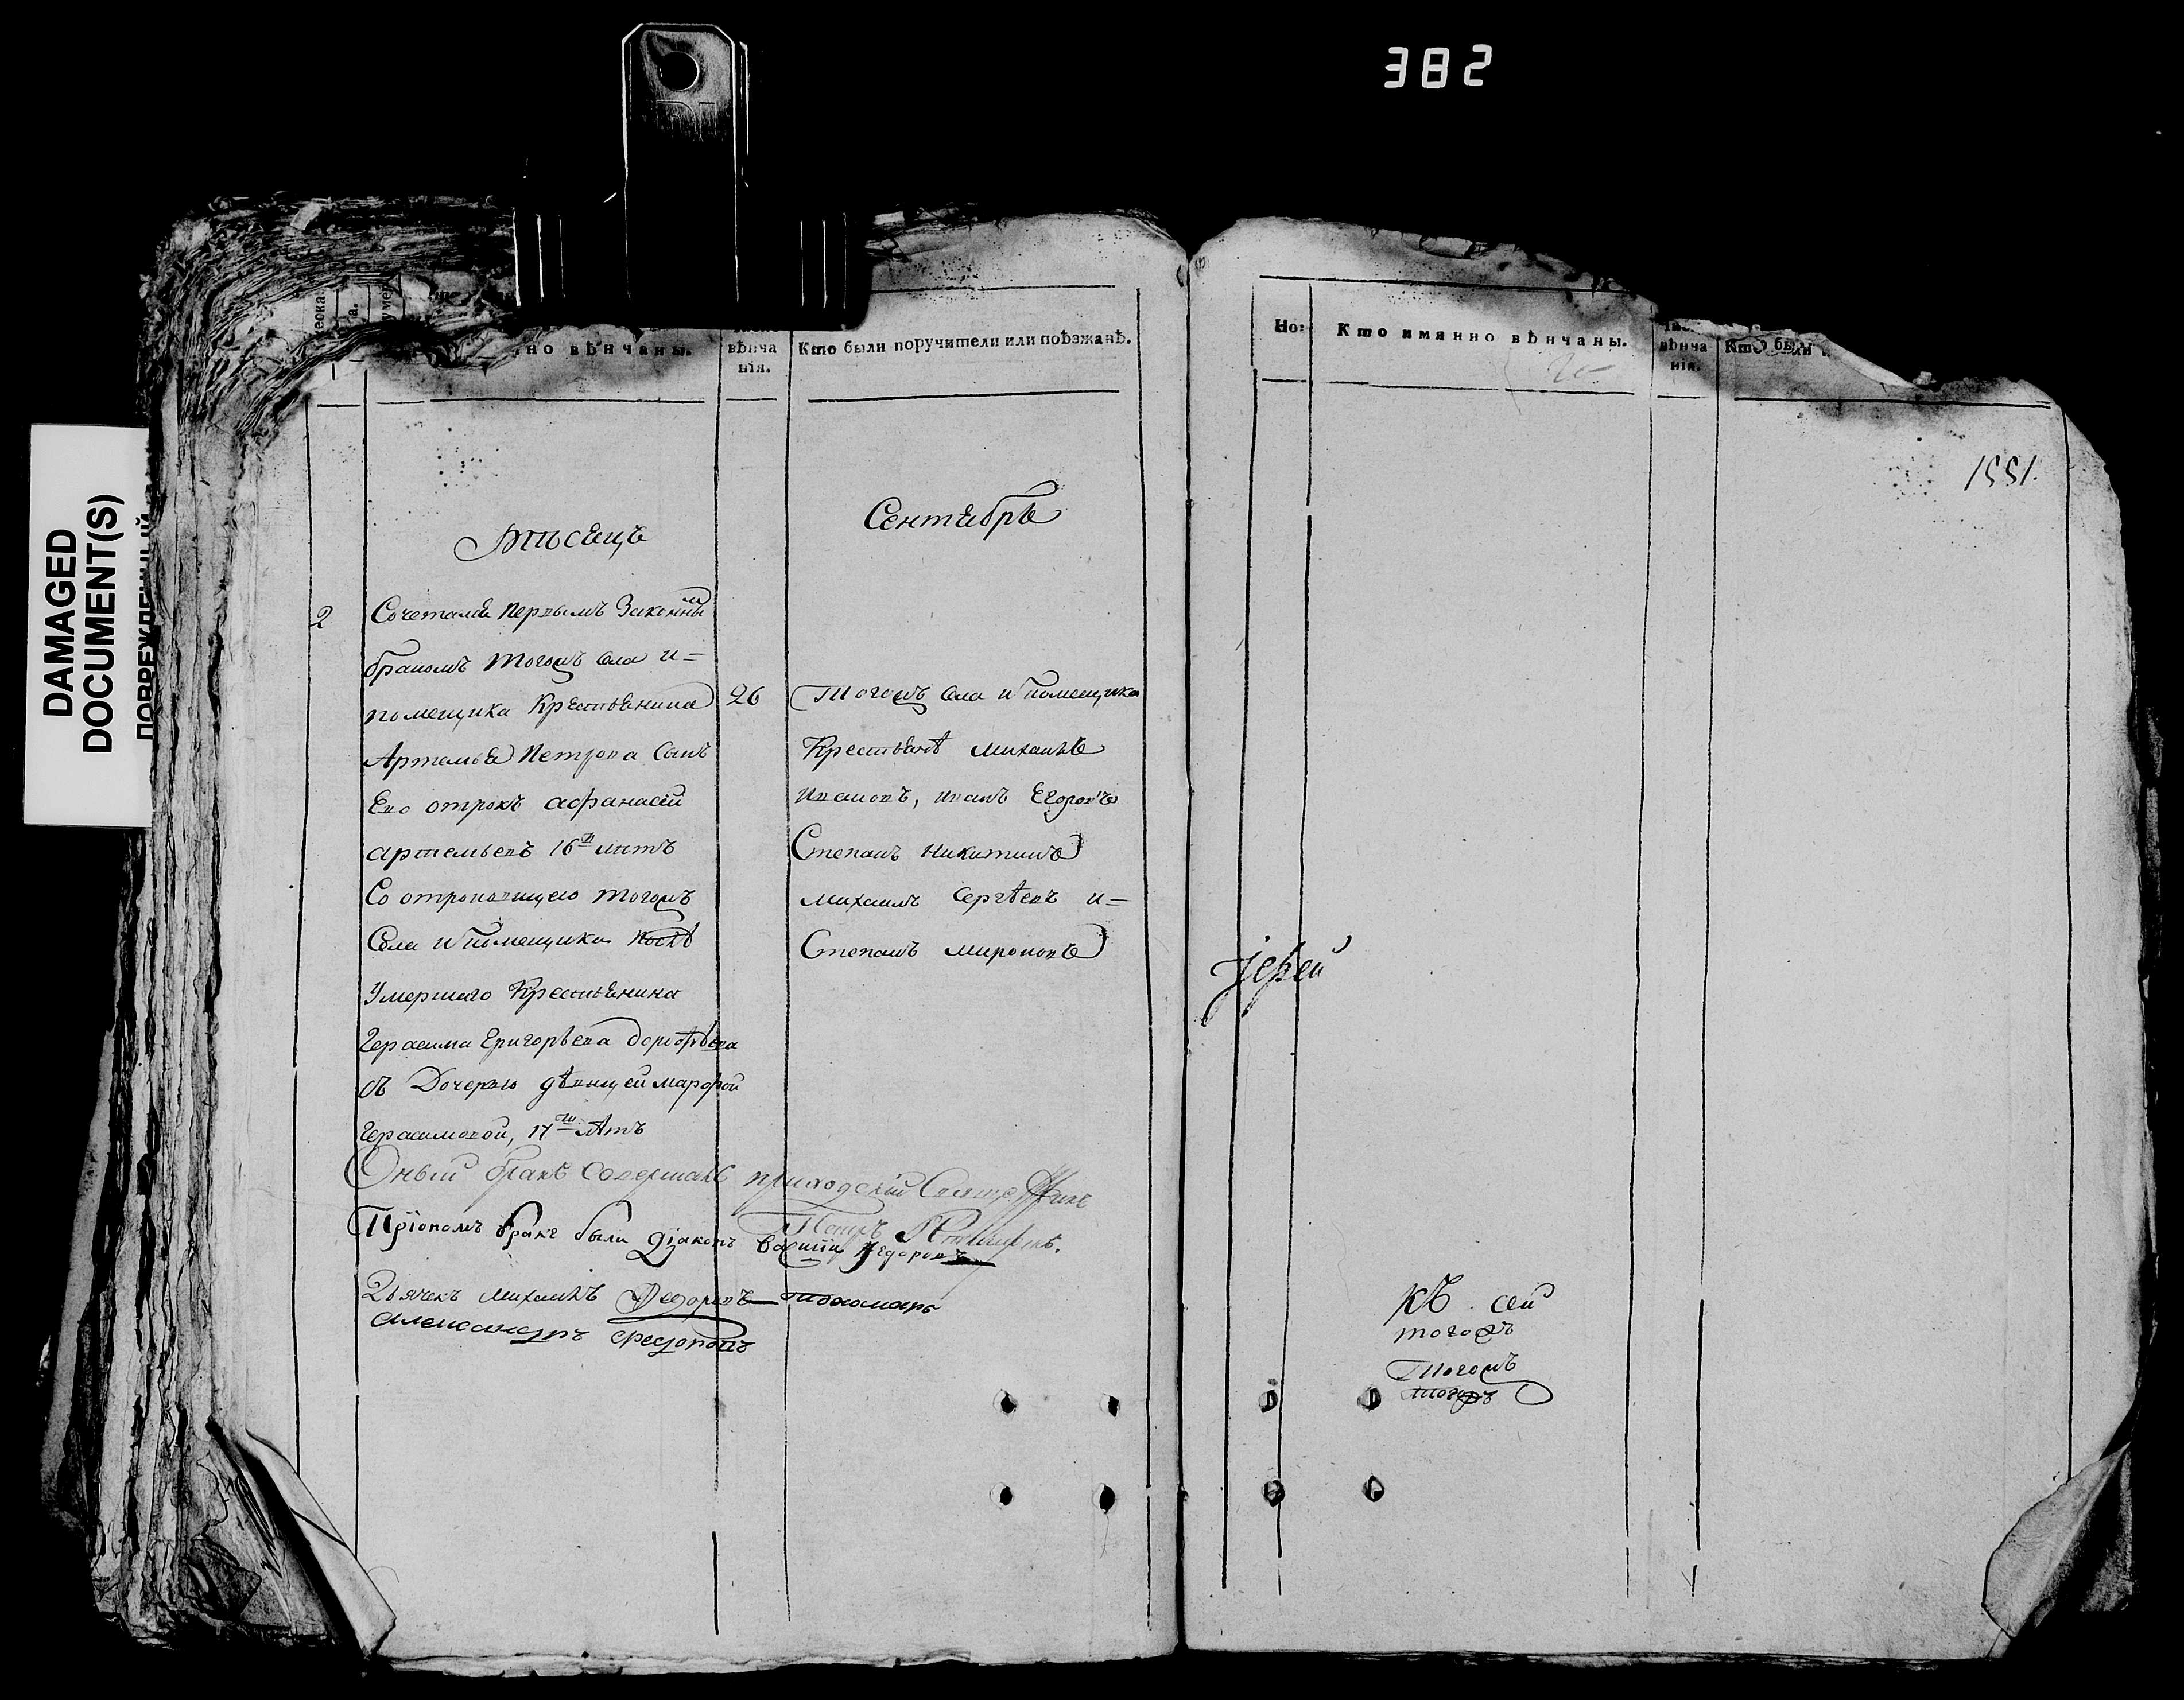 382
DAMAGED
DOCUMENT(S)
но вѣнчаны.
вѣнча
нія.
Кто были поручители или поѣзжанѣ.
Мѣсяцъ
Сентябрь
2
Сочетался первымъ законны м
бракомъ тогожъ села и=
помещика крестьянина
Артемья Петрова сынъ
Ево отрокъ афанасей
артемьевъ 16 лѣтъ
Со отроковицею тогожъ
Села и помещика
умершаго крестьянина
Герасима Григорьева
съ Дочерью дѣвицей марфой
Герасимовой, 17 лѣтъ
26
Тогожъ села и помещика
Крестьянѣ михаилъ
ивановъ, иванъ Егоровъ
Степанъ Никитинъ
михаилъ Сергѣевъ и=
Степанъ мироновъ
Оный бракъ совершалъ приходскій
Петръ
Пріономъ бракѣ были діаконъ Василій Федоровъ
Дьячекъ михаилъ Федоровъ пономарь
александръ федоровъ
Но:
Кто имянно вѣнчаны.
вѣнча
нія.
Кто были
1551.
Іерей
къ сей
тогожъ
Тогожъ
тогожъ